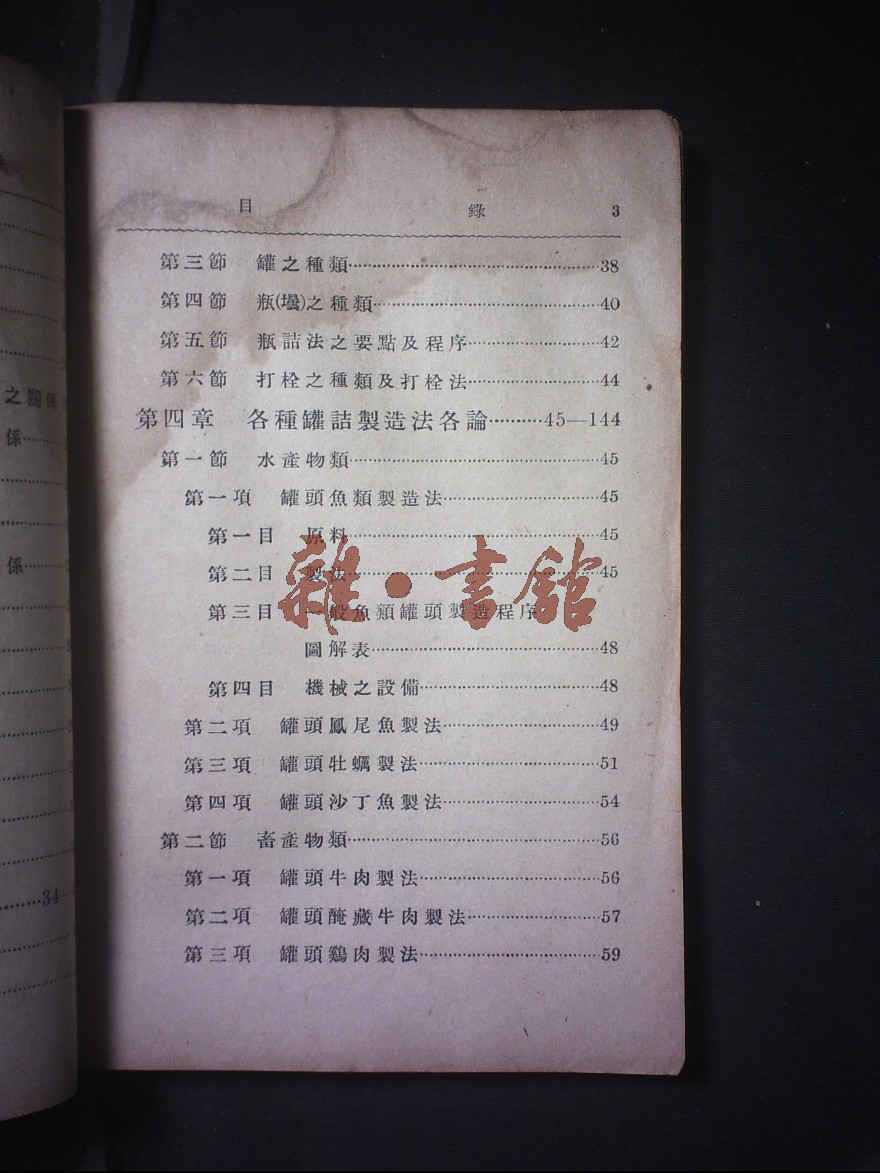 目錄 3
第三節 罐之種類……38
第四節 瓶(壜)之種類……40
第五節 瓶詰法之要點及程序……42
第六節 打栓之種類及打栓法……44
第四章 各種罐詰製造法各論……45—144
第一節 水產物類……45
第一項 罐頭魚類製造法……45
第一目 原料……45
第二目 製法……45
第三目 一般魚類罐頭製造程序
圖解表……48
第四目 機械之設備……48
第二項 罐頭鳳尾魚製法……49
第三項 罐頭牡蠣製法……51
第四項 罐頭沙丁魚製法……54
第二節 畜產物類……56
第一項 罐頭牛肉製法……56
第二項 罐頭醃藏牛肉製法……57
第三項 罐頭鷄肉製法……59
雜·書館
之關係
係……
係……
……34